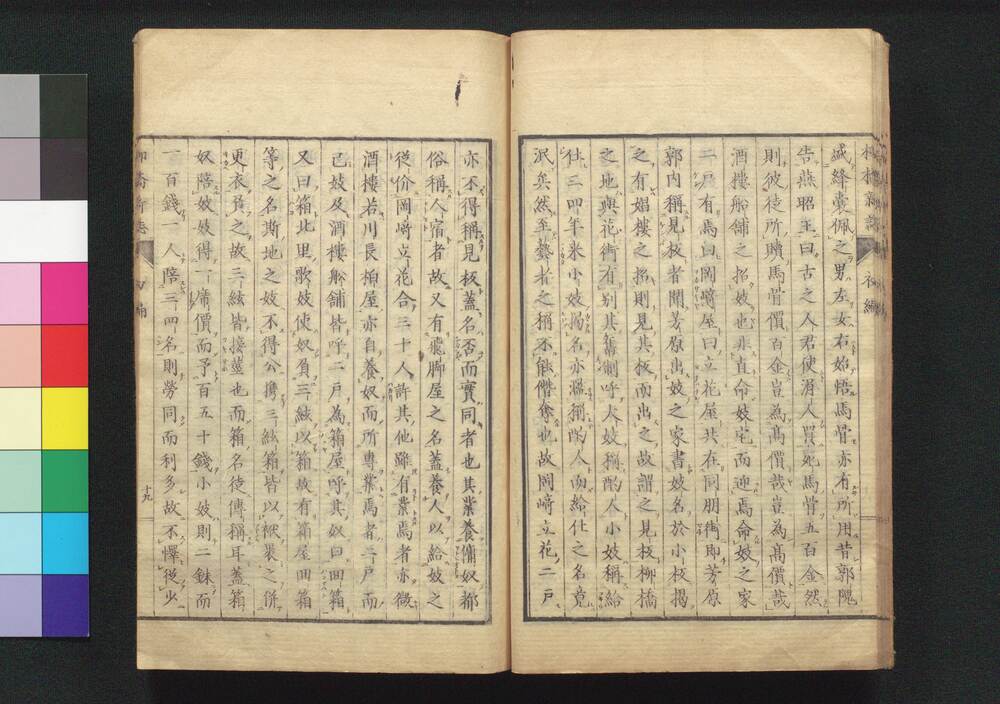 柳橋新誌 初編
盛絳囊佩之男左女右始悟馬骨亦有所用昔郭隗
告燕昭王曰古之人君使涓人買死馬骨五百金然
則彼徒所購馬骨價百金豈為高價哉豈為高價哉
酒樓船舗之招妓也非直命妓宅而迎焉命妓之家
二戶有焉曰岡﨑屋曰立花屋共在同朋街即芳原
郭內稱見板者聞芳原出妓之家書妓名於小板揭
之有娼樓之招則見其板而出之故謂之見板柳橋
之地與花街有別其舊制呼大妓稱酌人小妓稱給
仕三四年来小妓揭名亦濫稱酌人而給仕之名竟
泯矣然至藝者之稱不能僭奪也故岡﨑立花二戶
亦不得稱見板蓋名否而實同者也其業養傭奴都
俗稱人宿者故又有飛脚屋之名蓋養人以給妓之
從价岡﨑立花合三十人許其他雖有業焉者亦微
酒樓若川長柏屋亦自養奴而所專業焉者二戶而
已妓及酒樓船舗皆呼二戶為箱屋呼其奴曰田箱
又曰箱此里歌妓使奴負三絃以箱故有箱屋田箱
等之名斯地之妓不得公携三絃箱皆以袱裹之併
更衣負之故三絃皆接莖也而箱名徒傳稱耳蓋箱
奴陪妓妓得一席價而予百五十錢小妓則二銖而
一百錢一人陪三四名則勞同而利多故不懌從少
柳橋新誌 初編 十九